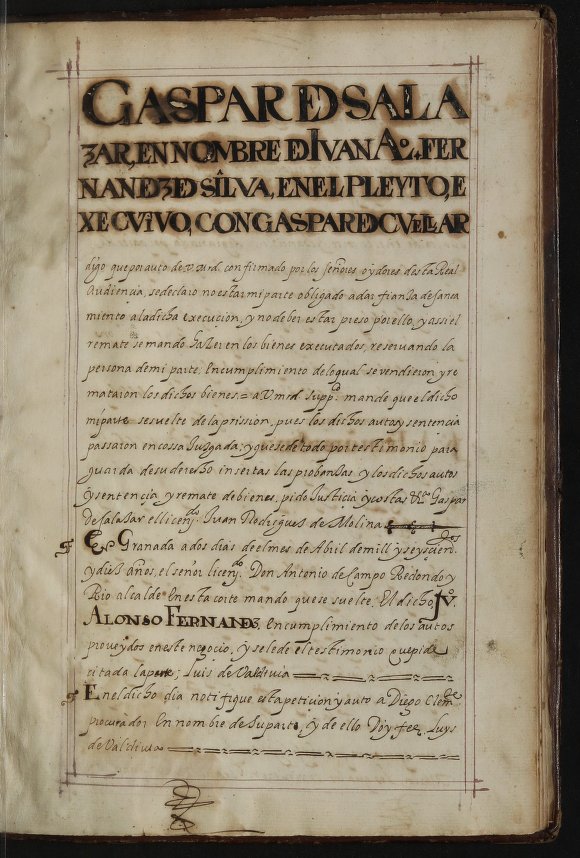 GASPAR DE SALA
ZAR, EN NOMBRE DE IVAN Aº. FER
NANDEZ DE SILVA, EN EL PLEYTO, E
XECVTIVO, CON GASPAR DE CVELLAR
digo que por auto de v. mrd. confirmado por los señores oydores desta Real
Audiencia, se declaro no estar mi parte obligado a dar fianza de sanea
miento a la dicha execucion, y no deber estar preso por ello, y assi el
remate se mando hazer en los bienes executados, reservando la
persona de mi parte, En cumplimiento de lo qual se vendieron y re
mataron los dichos bienes = a V mrd. suppº. mande que el dicho
mi parte se suelte de la prission, pues los dichos autos y sentencia
passaron en cossa Juzgada; y que se de todo por testimonio para
guarda de su derecho insertas las probanzas y los dichos autos
y sentencia y remate de bienes, pido Justicia y costas Gaspar
de salazar el licendo. Juan Rodrigues de Molina
En Granada a dos dias de el mes de Abril de mill y seyscien.tos
y diez años, el señor licendo. Don Antonio de Campo Redondo y
Rio alcalde En esta corte mando que se suelte, El dicho Jvº.
ALONSO FERNANDZ En cumplimiento de los autos
proveydos en este negocio, y se le de el testimonio que pide
citada la parte; Luis de Valdivia
En el dicho dia notifique esta peticion y auto a Diego Clemte
procurador En nombre de su parte, y de ello Doy fee, Luys
de Valdivia